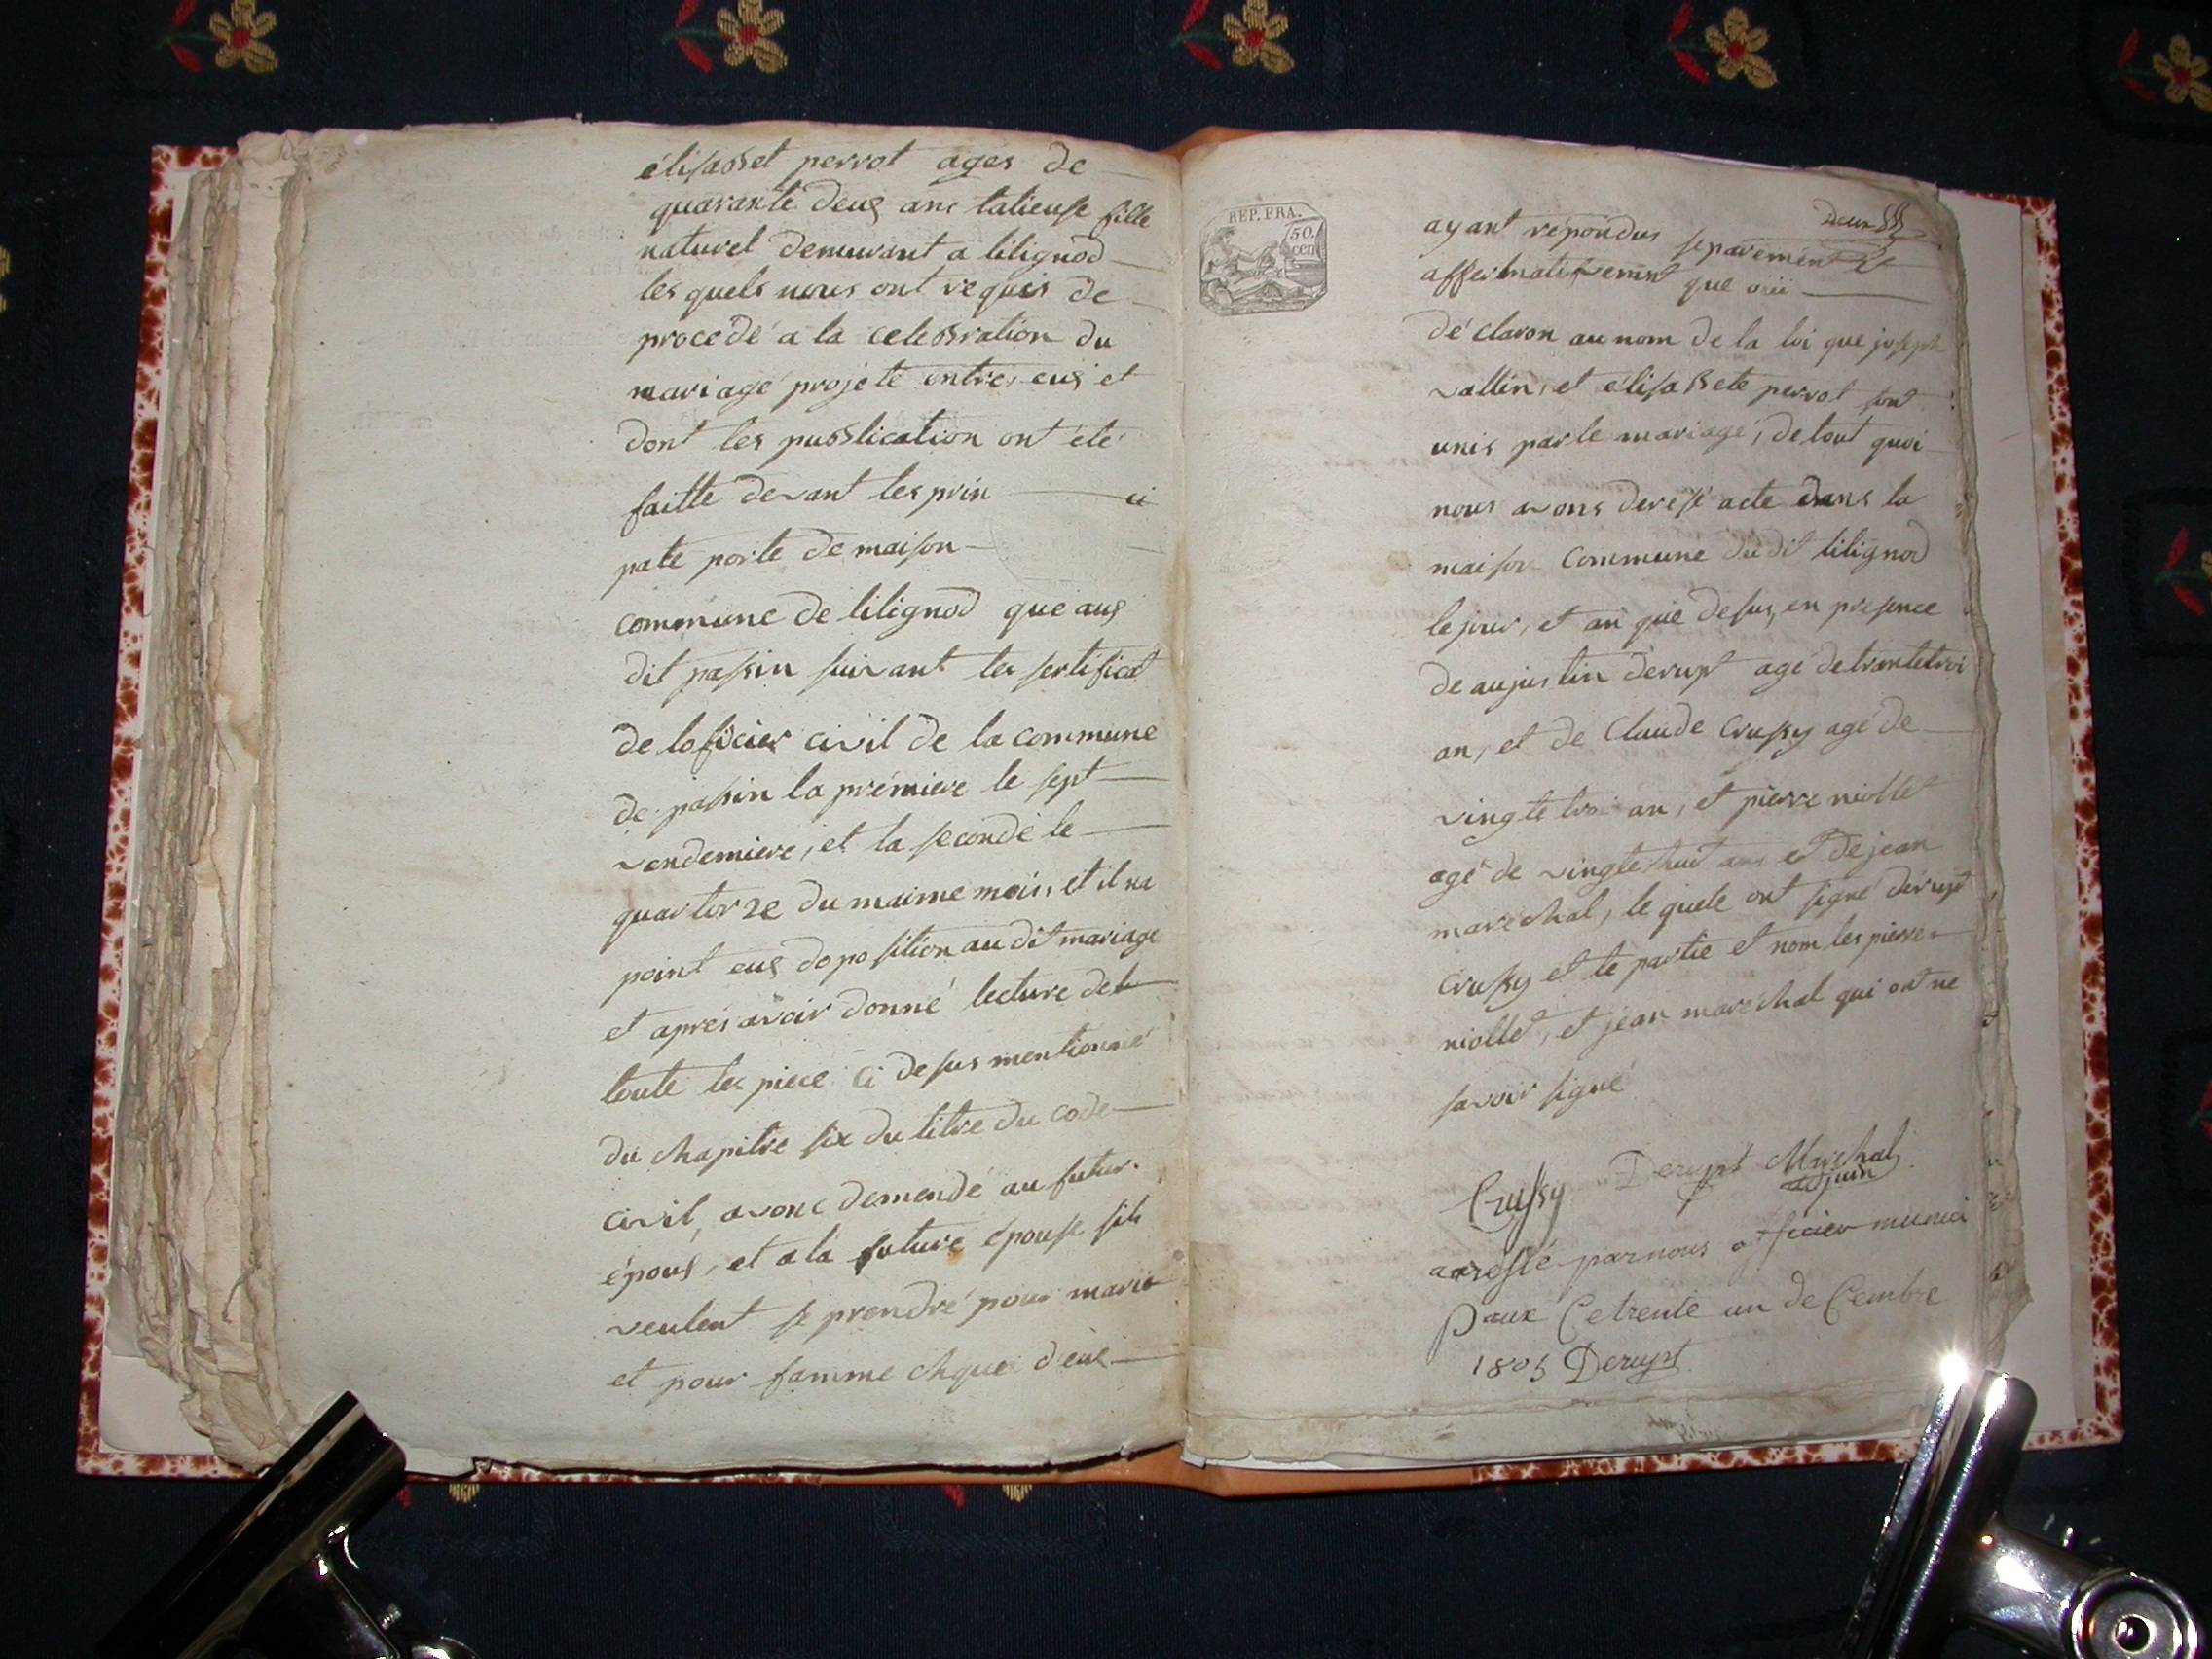 élisabet perrot ages de
quarante deux ans talieuse fille
naturel demeurant a lilignod
les quels nous ont requis de
procédé a la celebration du
mariage projeté entres eux et
dont les publication ont été
faitte devant les prin ci
pale porte de maison
commune de lilignod que aux
dit passin suivant les sertificat
de loficier civil de la commune
de passin la prémiere le sept
vendemiere, et la seconde le
quartorze du maime mois, et il na
point eus doposition au dit mariage
et aprés avoir donné lecture de
toute les piece ci desus mentionné
du chapitre six du titre du code
civil, avons demendé au futur
époux, et a la future épouse sils
veulent se prendré pour marie
et pour famme chque d'eux
REP. FRA.
50. cen
deux
ayant répondus separement et
affermativement que oui
déclaron au nom de la loi que joseph
vallin, et élisabete perrot sont
unis par le mariage, de tout quoi
nous avons deressé acte dans la
maison commune du dit lilignod
le jour, et an que desus, en presence
de aujustin derupt agé de trantetroi
an, et de Claude Crussy agé de
vingte troi an, et pierre niollet
agé de vingte huit ans et de jean
marechal, le quele ont signé dérupt
crussy et le partie et nom les pierre
niollet, et jean marechal qui ont ne
savoir signé
Crussy Derupt Marchal
adjoin
arresté par nous officier munici
paux Ce trente un de Cembre
1805 Derupt